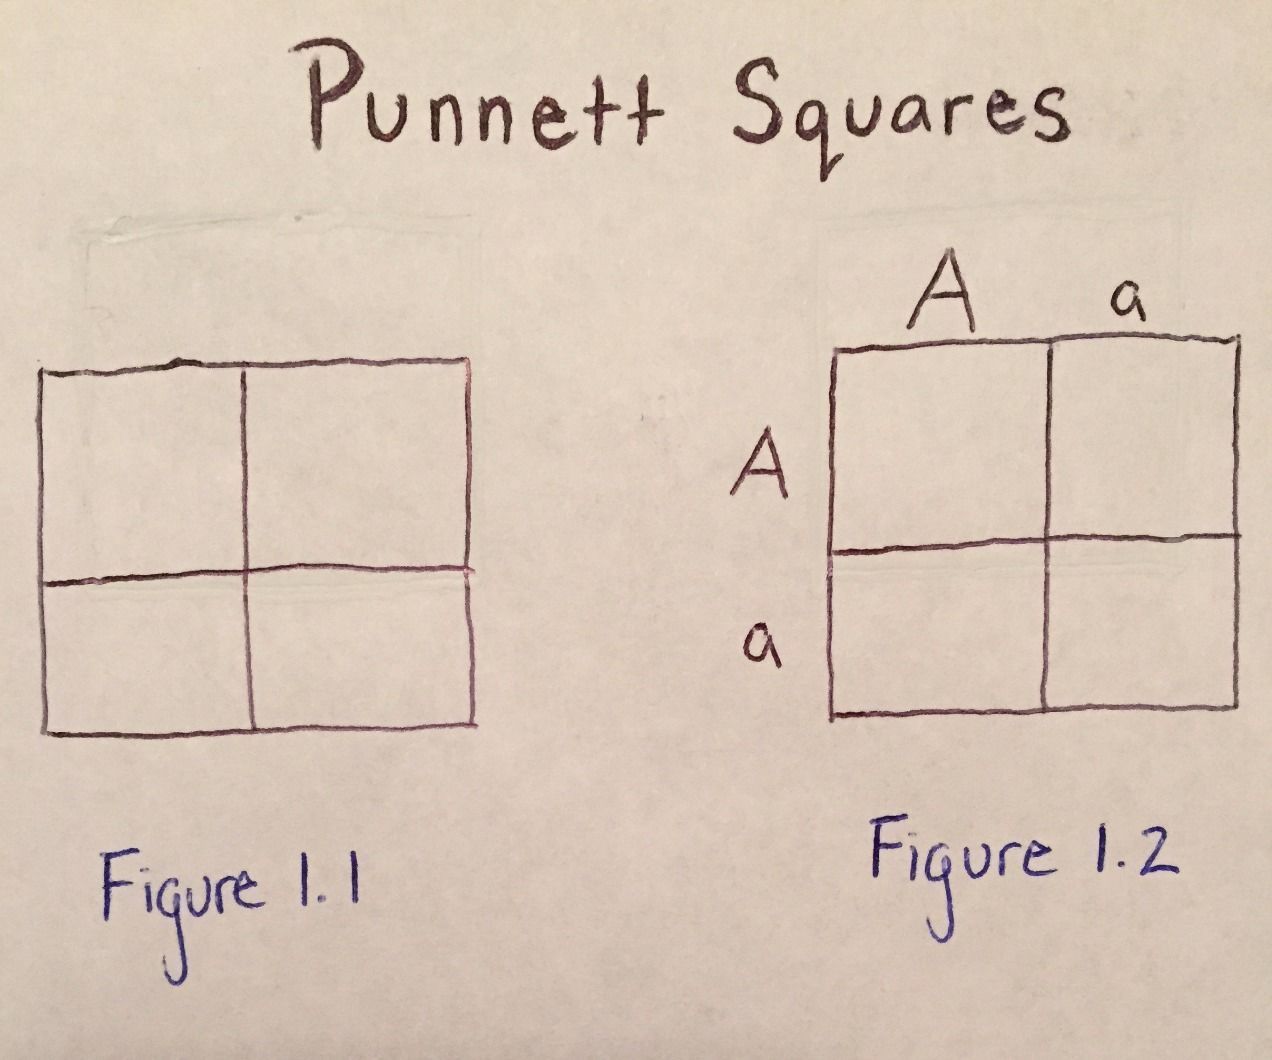 Punnett Squares
A a
A
a
Figure 1.1
Figure 1.2